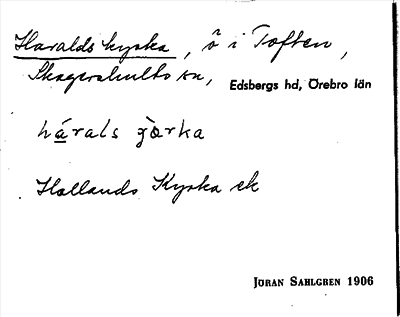 Haralds kyrka, ö i Toften,
Skagershults sn, Edsbergs hd, Örebro län
hárals
Hallands Kyrka ek
JÖRAN SAHLGREN 1906